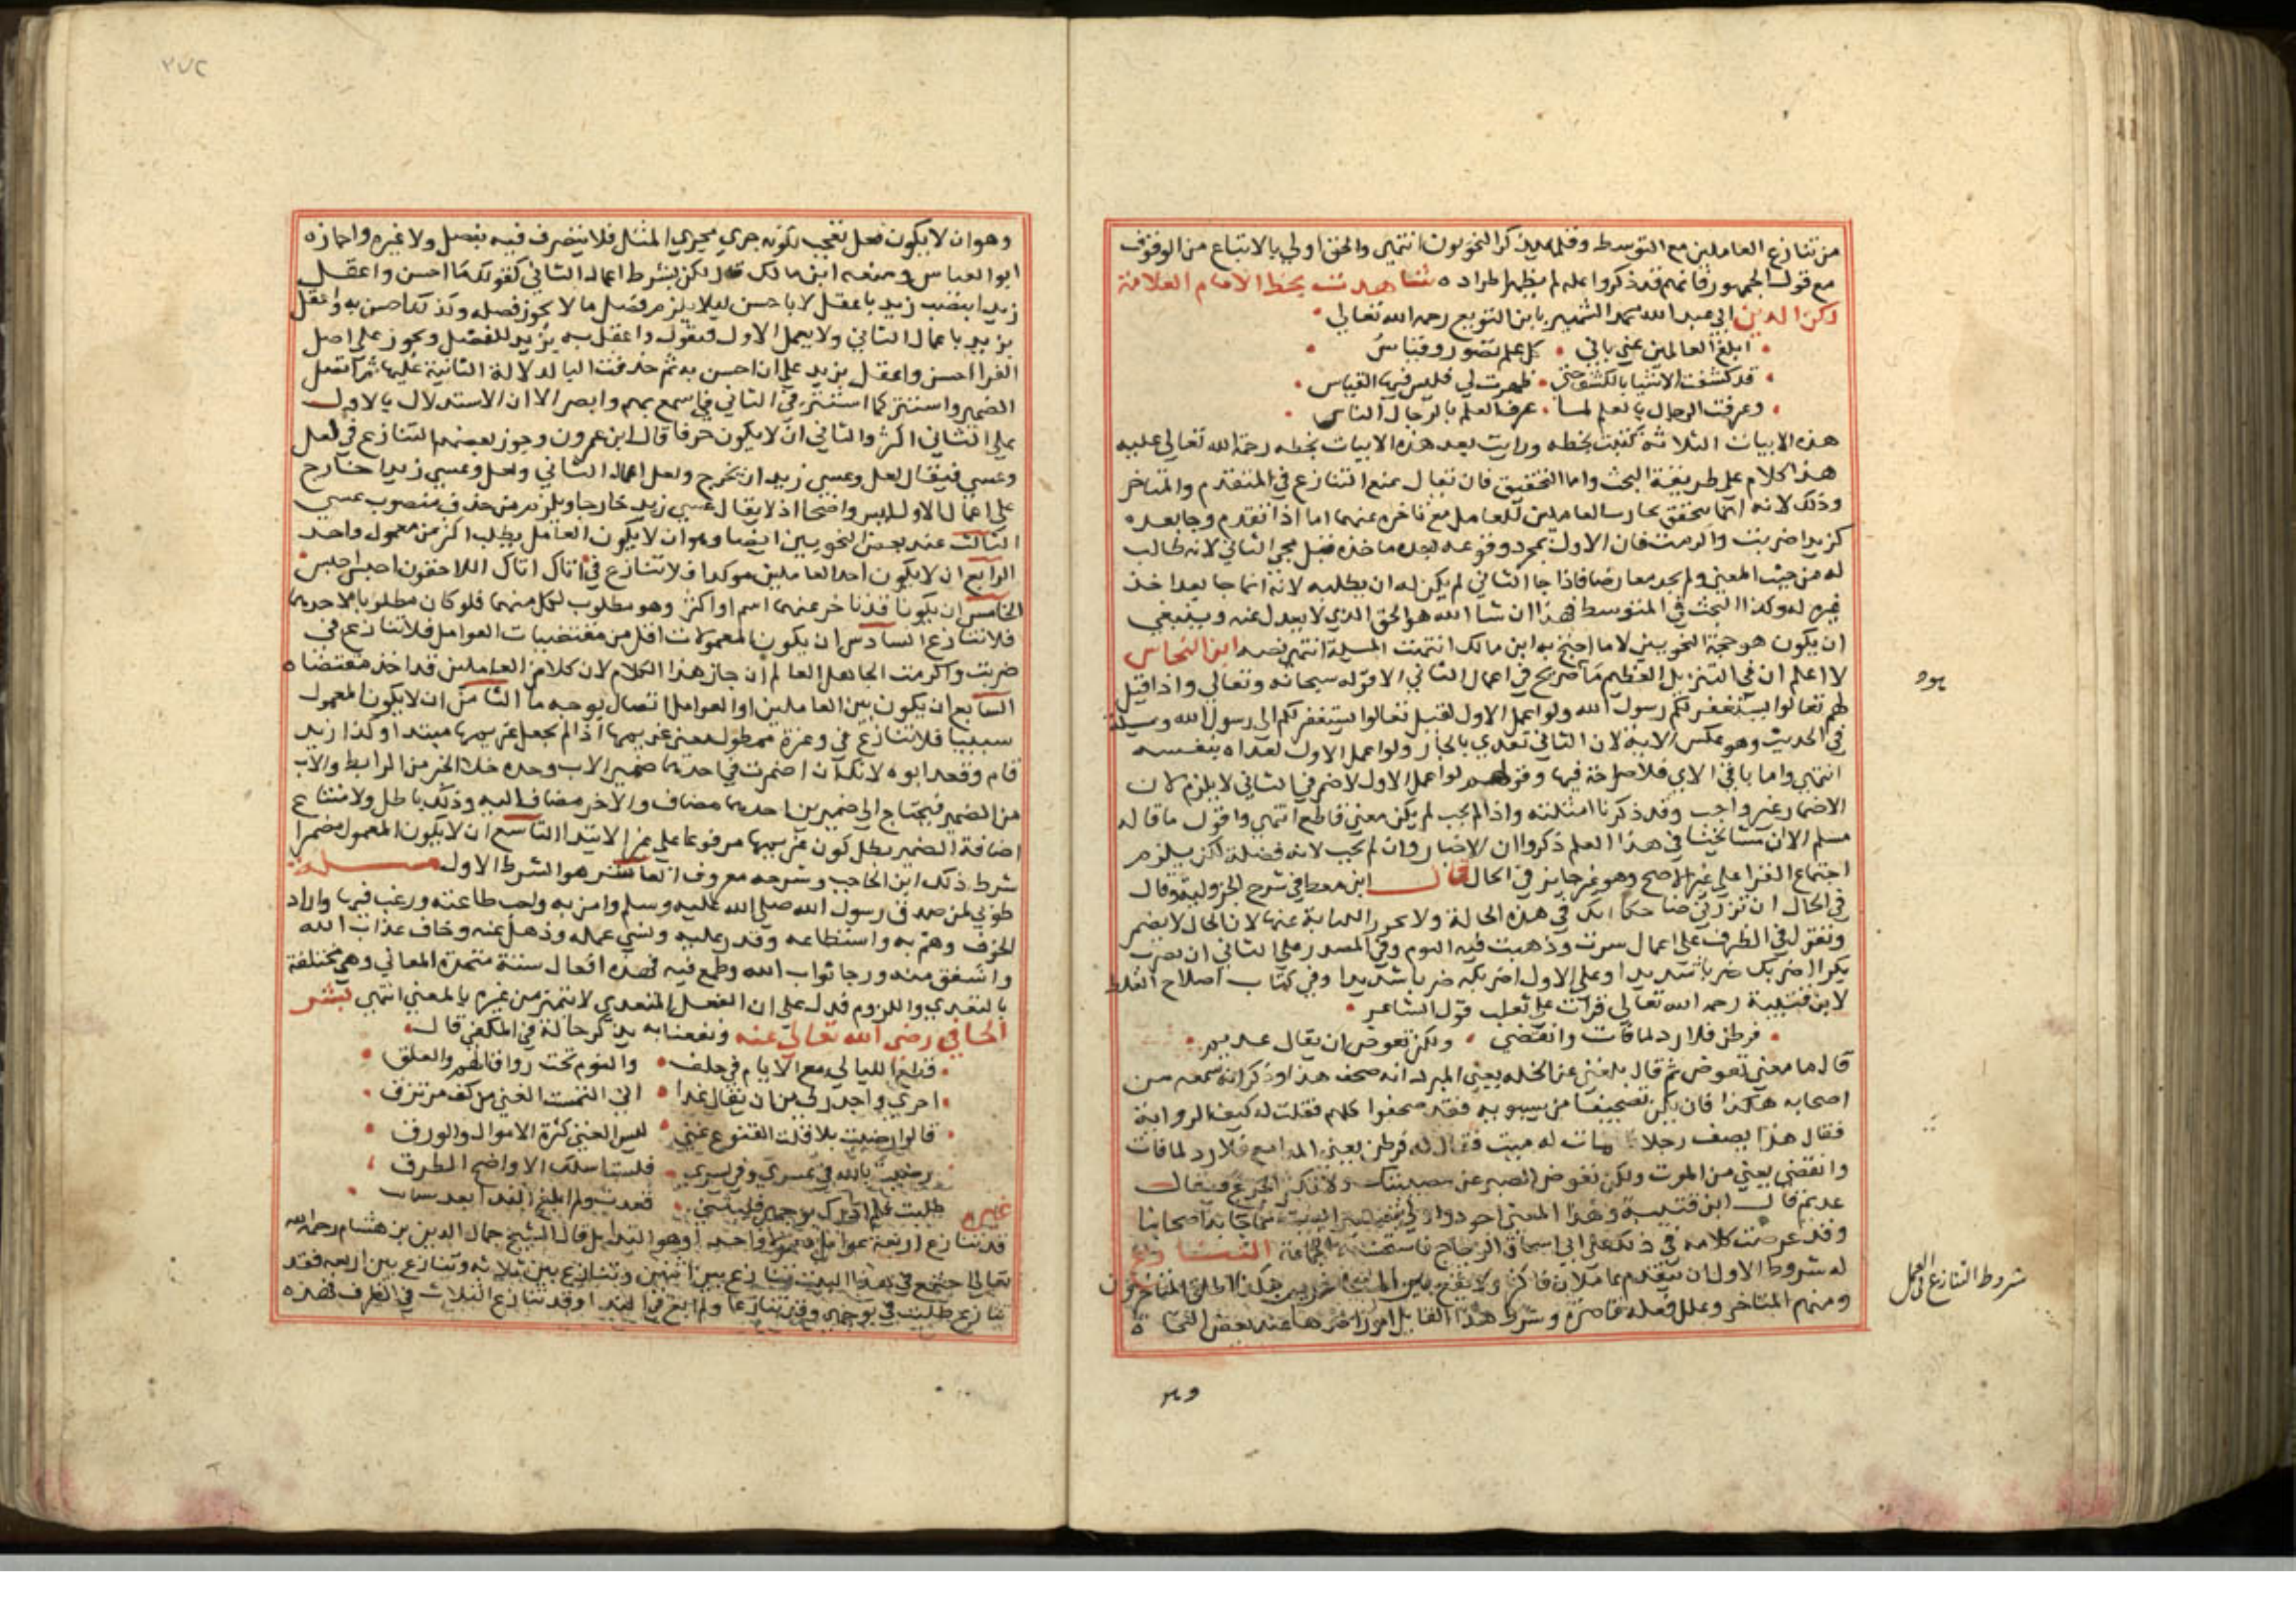 من تنازع العاملين مع التوسط وقلما يذكر النحويون انتهى والحق اولى بالاتباع من الوقوف
مع قول الجمهور فانهم قد ذكروا عله لم يظهر اطراد ه شاهدت بخط الامام العلامة
ركن الدين ابي عبد الله محمد الشهير بابن القوبع رحمه الله تعالى
ابلغ العالمين عني باني كل علم تصور وقياس
قد كشفت الاشيا بالكشف حتى ظهرت لي فليس فيها القياس
وعرفت الرجال بالعلم لما عرف العلم بالرجال الناس
هذه الابيات الثلاثة كتبت بخطه ورايت بعد هذه الابيات بخطه رحمة الله تعالى عليه
هذا كلام على طريقة البحث واما التحقيق فان تعال نمنع التنازع في المتقدم والمتاخر
وذلك لانه انما يتحقق العاملين للعامل مع تاخره عنهما اما اذا تقدم وجا بعده
كزيدا ضربت واكرمت فان الاول بمجرد وقوعه بعده ماخذه قبل مجي الثاني لانه طالب
له من حيث المعنى ولم يجد معارضا فاذا جا الثاني لم يكن له ان يطلبه لانه انما جا بعد اخذ
غيره له وكذا البحث في المتوسط فهذا ان شا الله هو الحق الذي لا يعدل عنه وينبغي
ان يكون هو حجة النحويين لا ما احتج به ابن مالك انتهت المسيلة انتهى نصه ابن النحاس
لا اعلم ان في التنزيل العظيم ما صريح في اعمال الثاني الا قوله سبحانه وتعالى واذا قيل
لهم تعالوا يستغفر لكم رسول الله ولو اعمل الاول لقيل تعالوا يستغفر لكم الى رسول الله
في الحديث وهو عكس الاية لان الثاني تعدى بالجار ولو اعمل الاول لعداه بنفسه
انتهى واما باقي الاي فلا صراحة فيها وقولهم لو اعمل الاول لاضمر في الثاني لا يلزم لان
الاضمار غير واجب وقد ذكرنا امثلته واذا لم يجب لم يكن معنى قاطع انتهى واقول ما قاله
مسلم الا ان مشايخنا في هذا العلم ذكروا ان الاضمار وان لم يجب لانه فضلة لكن يلزم
اجتماع القرا على غير الاصح وهو غير جايز في الحال قال ابن معط في شرح الجزولية وقال
في الحال ان تزرني ضاحكا اتك في هذه الحالة ولا الكناية عنها لان الحال لا يضمر
ونقول في الظرف على اعمال سرت وذهبت فيه اليوم وفي المصدر على الثاني ان يضرب
بكر اضربك ضربا شديدا وعلى الاول اضربكه ضربا شديدا وفي كتاب اصلاح الغلط
لابن قتيبة رحمه الله تعالى قرات على ثعلب قول الشاعر
فرطن فلا رد لما فات وانقضى ولكن تعوض ان يقال عديم
قال ما معنى تعوض ثم قال بلغني عن يعني المبرد انه صحف هذا وذكر انه سمعه من
اصحابه هكذا فان يكن تصحيفا من سيبويه فقد صحفوا كلهم فقلت له كيف الرواية
فقال هذا يصف رجلا مات له ميت فقال له فرطن يعني المدامع فلا رد لما فات
وانقضى يعني من الموت ولكن تعوض الصبر عن مصيبتك ولا تكثر الجزع فيقال
عديم قال ابن قتيبة وهذا المعنى اجود اصحابنا
وقد عرضت كلامه في ذلك على ابي اسحاق الزجاج فاستحسنه الجماعة التنازع
له شروط الاول ان يتقدم عاملان فاكثر ولا يقع بين المتاخرين هكذا اطلق المتاخرون
ومنهم المتاخر وعلل فعله قاصرة وشرط هذا القابل امور اخر ها عند بعض النحاة
يود
شروط التنازع في العمل
وهو
٢٧٢
وهو ان لا يكون فعل تعجب لكونه جرى مجرى المثل فلا يتصرف فيه بفصل ولا غيره واجازه
ابو العباس ومنعه ابن مالك لكن بشرط اعمال الثاني كقولك ما احسن واعقل
زيدا بنصب زيد باعقل لا باحسن ليلا يلزم فصل ما لا يجوز فصله وكذلك احسن به واعقل
بزيد باعمال الثاني ولا يعمل الاول فيقول واعقل به بزيد للفصل ويجوز على اصل
الفرا احسن واعقل بزيد على ان احسن به ثم حذفت البا لدلالة الثانية عليها ثم اتصل
الضمير واستتر كما استتر في الثاني في اسمع بهم وابصر الا ان الاستدلال بالاول
على الثاني اكثر والثاني ان لا يكون حرفا قال ابن عمرون وجوز بعضهم التنازع في لعل
وعسى فيقال لعل وعسى زيد ان يخرج ولعل اعمال الثاني ولعل وعسى زيدا خارج
على اعمال الاول ليس واضحا اذ لا يقال عسى زيد خارجا ويلزم من حذف منصوب عسى
الثالث عند بعض النحويين ايضا وهو ان لا يكون العامل يطلب اكثر من معمول واحد
الرابع ان لا يكون احد العاملين موكدا فلا تنازع في اتاك اتاك اللاحقون احبس احبس
الخامس ان يكونا قد تاخر عنهما اسم او اكثر وهو مطلوب لكل منهما فلو كان مطلوبا لاحدهما
فلا تنازع السادس ان يكون المعمولات اقل من مقتضيات العوامل فلا تنازع في
ضربت واكرمت الجاهل العالم ان جاز هذا الكلام لان كلا من العاملين قد اخذ مقتضاه
السابع ان يكون بين العاملين او العوامل اتصال بوجه ما الثامن ان لا يكون المعمول
سببيا فلا تنازع في وعزة ممطول معنى غريمها اذا لم يجعل غريمها مبتدا وكذا زيد
قام وقعد ابوه لانك ان اضمرت في احدهما ضمير الاب وحده خلا الخبر من الرابط والاب
من الضمير فيحتاج الى ضميرين احدهما مضاف والاخر مضاف اليه وذلك باطل ولامتناع
اضافة الضمير بطل كون غريمها مرفوعا على غير الابتدا التاسع ان لا يكون المعمول مضمرا
شرط ذلك ابن الحاجب وشرحه معروف العاشر هو الشرط الاول مسلة
طوبى لمن صدق رسول الله صلى الله عليه وسلم وامن به واحب طاعته ورغب فيها واراد
الخير وهم به واستطاعه وقدر عليه ونسي عمله وذهل عنه وخاف عذاب الله
واشفق منه ورجا ثواب الله وطمع فيه فهذه افعال ستة متحدة المعاني وهي مختلفة
بالتعدي واللزوم فدل على ان الفعل المتعدي لا يتميز من غيره بالمعنى انتهى لبشر
الحافي رضى الله تعالى عنه ونفعنا به يذكر حاله في المكفي قال
قطع الليالي مع الايام في خلف والنوم تحت رواق الهم والقلق
احرى واجدر لي من ان يقال غدا اني التمست الغنى من كف مرتزق
قالوا رضيت بذا قلت القنوع غنى ليس الغنى كثرة الاموال والورق
رضيت بالله في عسري وفي يسري فلست اسلك الا واضح الطرق
غيره طلبت فلم ادرك بوجهي فليتني قعدت ولم ابلغ الندا بعد سايب
قد تنازع اربعة عوامل معمولا واحدا وهو الندا بل قال الشيخ جمال الدين بن هشام رحمه الله
تعالى اجتمع في هذا البيت تنازع بين اثنين وتنازع بين ثلاثه وتنازع بين اربعه فقد
تنازع طلبت في بوجهي وقد تنازعا ولم ابغ في الندا وقد تنازع الثلاث في الظرف فهذه